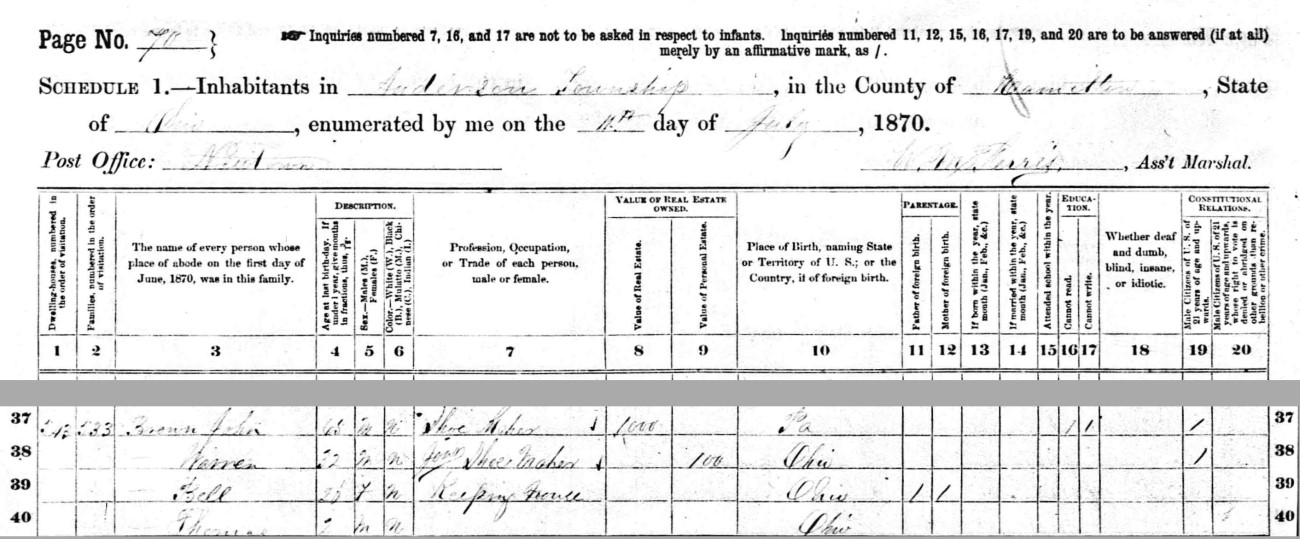 Page No. 70 }
☞ Inquiries numbered 7, 16, and 17 are not to be asked in respect to infants. Inquiries numbered 11, 12, 15, 16, 17, 19, and 20 are to be answered (if at all)
merely by an affirmative mark, as /.
SCHEDULE 1.—Inhabitants in Anderson Township, in the County of Hamilton, State
of Ohio, enumerated by me on the day of July, 1870.
Post Office: Newtown W. M. Ferris, Ass't Marshal.
Dwelling-houses, numbered in the order of visitation.
Families, numbered in the order of visitation.
The name of every person whose
place of abode on the first day of
June, 1870, was in this family.
DESCRIPTION.
Age at last birth-day. If under 1 year, give months in fractions, thus, 
Sex.—Males (M.), Females (F.)
Color.—White (W.), Black (B.), Mulatto (M.), Chinese (C.), Indian (I.)
Profession, Occupation,
or Trade of each person,
male or female.
VALUE OF REAL ESTATE
OWNED.
Value of Real Estate.
Value of Personal Estate.
Place of Birth, naming State
or Territory of U. S.; or the
Country, if of foreign birth.
PARENTAGE.
Father of foreign birth.
Mother of foreign birth.
If born within the year, state month (Jan., Feb., &c.)
If married within the year, state month (Jan., Feb., &c.)
Attended school within the year.
EDUCA-
TION.
Cannot read.
Cannot write.
Whether deaf
and dumb,
blind, insane,
or idiotic.
CONSTITUTIONAL
RELATIONS.
Male Citizens of U. S. of 21 years of age and upwards.
Male Citizens of U. S. of 21 years of age and upwards, whose right to vote is denied or abridged on other grounds than rebellion or other crime.
1 2 3 4 5 6 7 8 9 10 11 12 13 14 15 16 17 18 19 20
37 533 Brown John M W Shoe Maker 1000 Pa 1 1 1 37
38 Warren 22 M W Shoe Maker 100 Ohio 1 38
39 Bell F W Keeping House Ohio 1 1 39
40 Thomas 2 M W Ohio 40